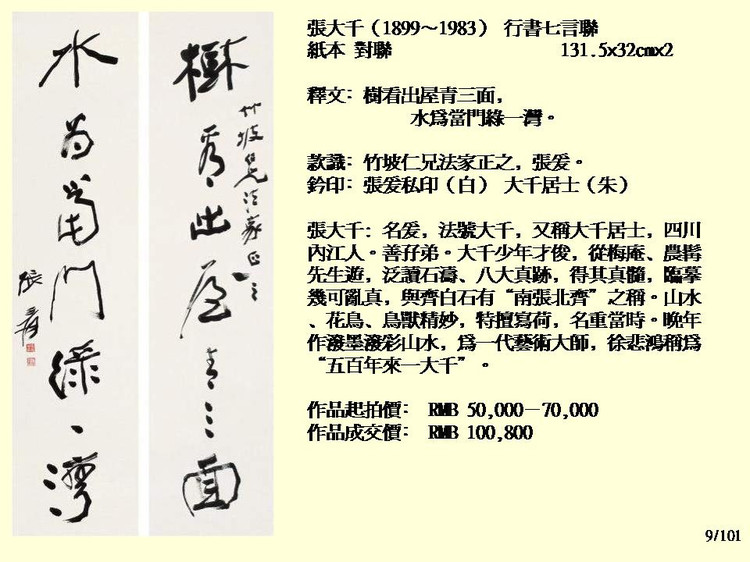 樹看出屋青三面
竹坡兄法家正之
水為當門綠一灣
張爰
張大千（1899～1983） 行書七言聯
紙本 對聯 131.5x32cmx2
釋文: 樹看出屋青三面,
水爲當門綠一灣。
款識: 竹坡仁兄法家正之, 張爰。
鈐印: 張爰私印（白） 大千居士（朱）
張大千: 名爰, 法號大千, 又稱大千居士, 四川
內江人。善孖弟。大千少年才俊, 從梅庵、農髯
先生遊, 泛讀石濤、八大真跡, 得其真髓, 臨摹
幾可亂真, 與齊白石有“南張北齊”之稱。山水
、花鳥、鳥獸精妙, 特擅寫荷, 名重當時。晚年
作潑墨潑彩山水, 爲一代藝術大師, 徐悲鴻稱爲
“五百年來一大千”。
作品起拍價: RMB 50,000－70,000
作品成交價: RMB 100,800
9/101